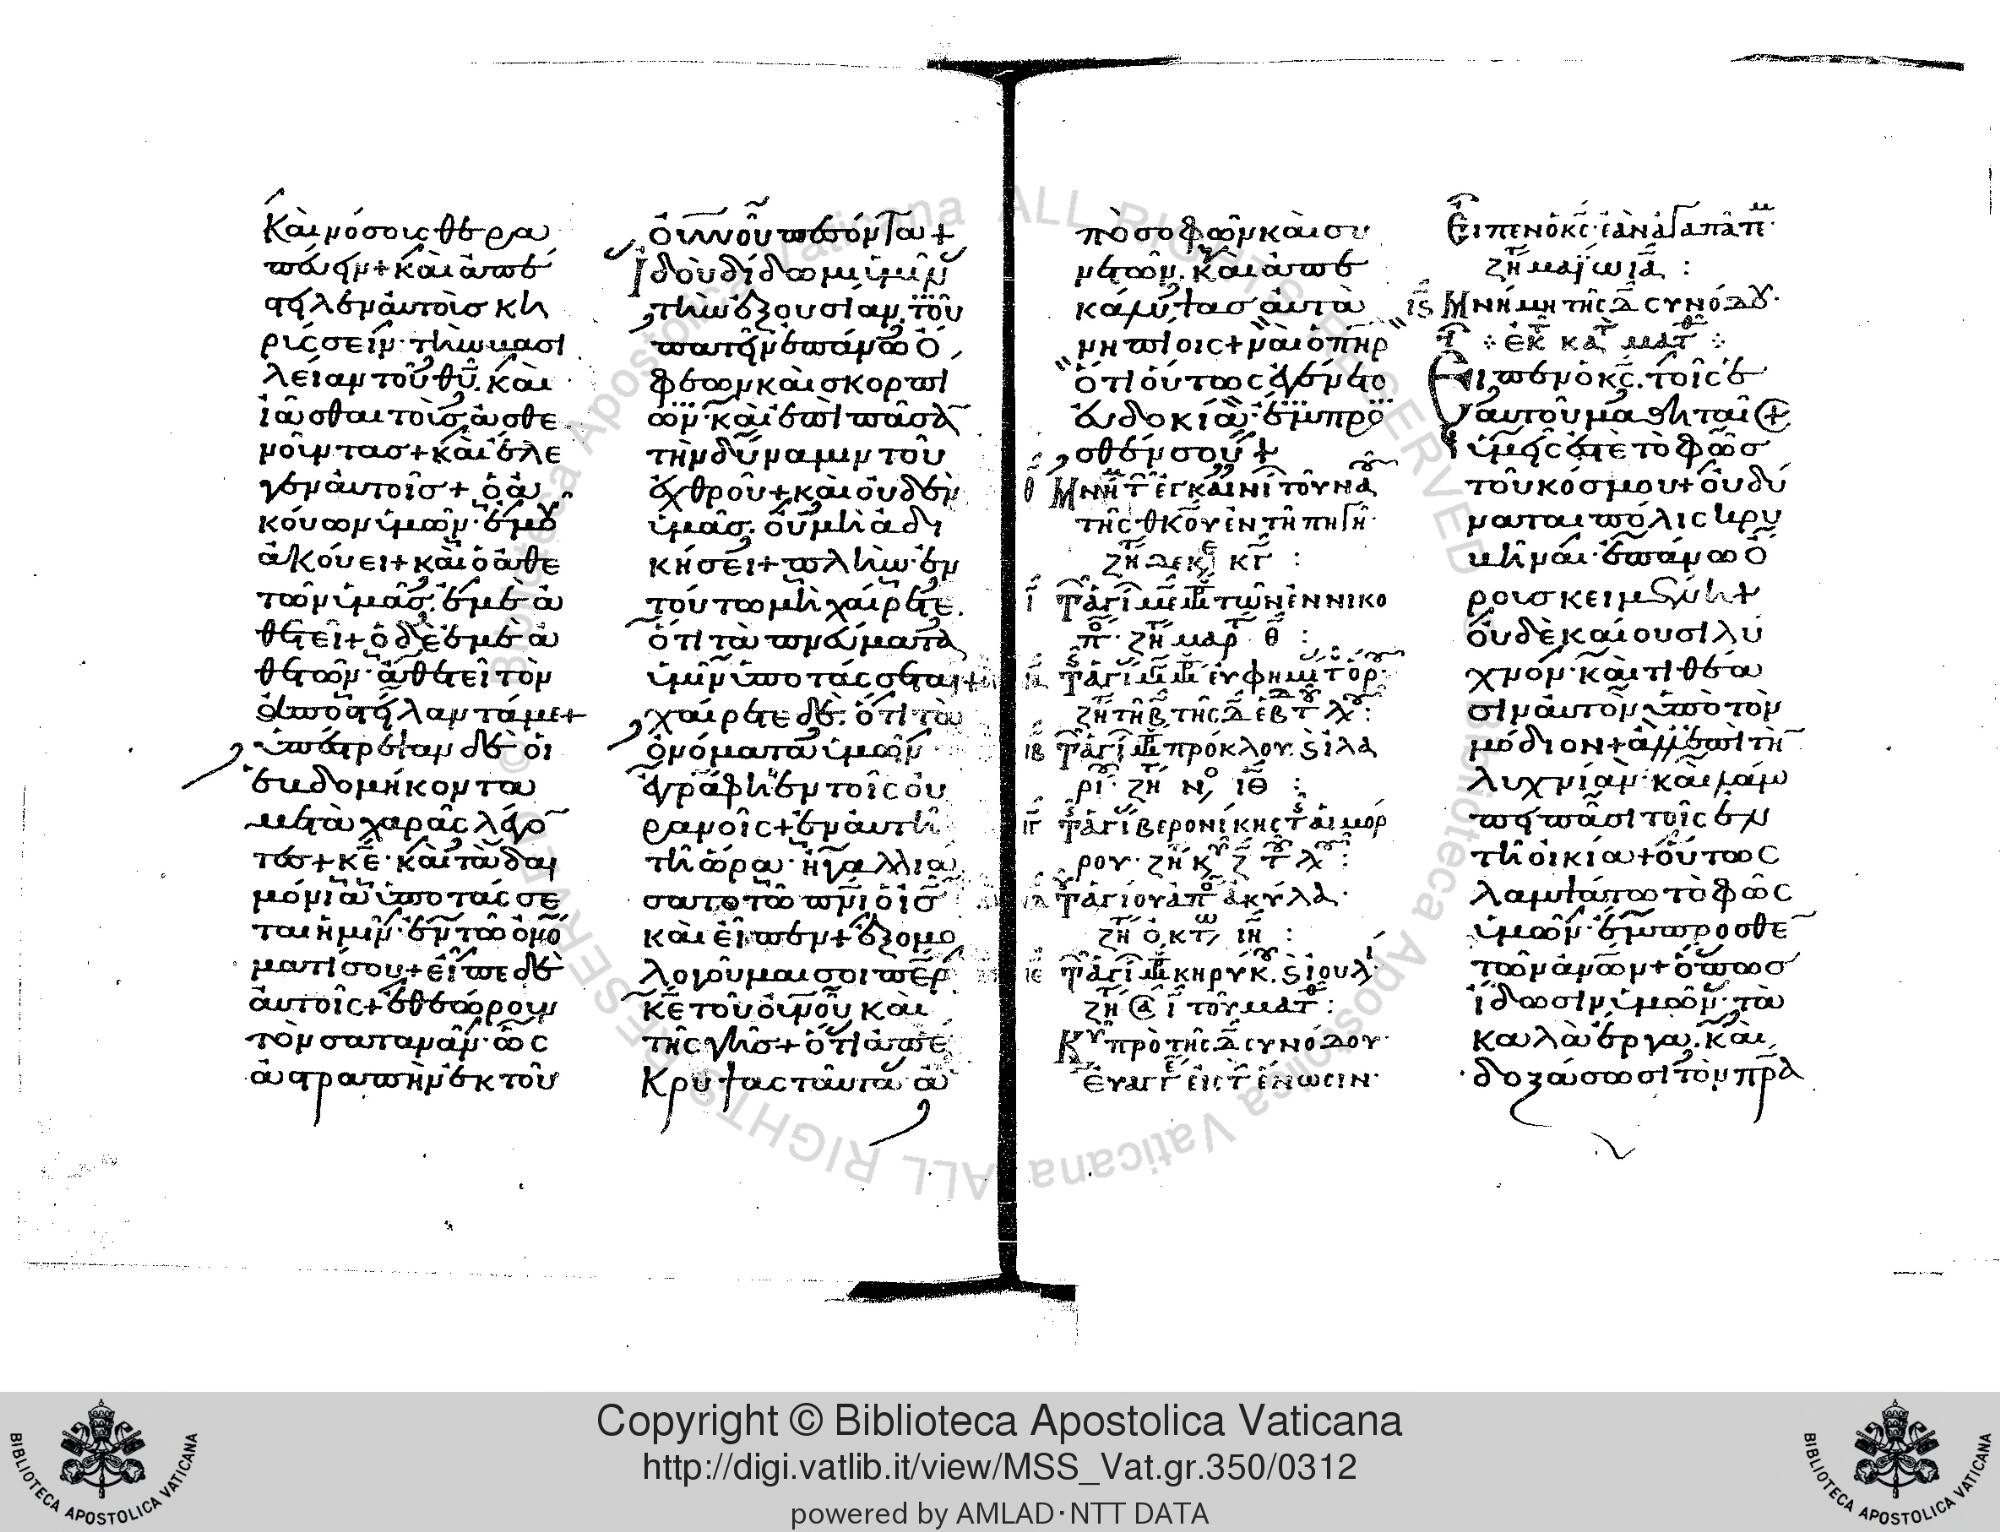 Καὶ νόσοις θερα
πεύειν + καὶ ἀπέ
στειλεν αὐτοὺσ κη
ρύσσειν· τὴν βασι
λείαν τοῦ θυ. καὶ
ἰᾶσθαι τοὺσ ἀσθε
νοῦντασ + καὶ ἔλε
γεν αὐτοῖσ + ὁ ἀ
κούων ὑμῶν· ἐμοῦ
ἀκούει + καὶ ὁ ἀθε
τῶν ὑμᾶσ. ἐμὲ ἀ
θετεῖ + ὁ δὲ ἐμὲ ἀ
θετῶν· ἀθετεῖ τὸν
ἀποστείλαντά με +
ὑπέστρεψαν δὲ οἱ
ἑβδομήκοντα
μετὰ χαρᾶς λέγο
τεσ + κε· καὶ τὰ δαι
μόνια ὑποτάσσε
ται ἡμῖν· ἐν τῶ ὀνό
ματί σου + εἶπε δὲ
αὐτοῖς + ἐθεώρουν
τὸν σατανᾶν· ὡς
ἀστραπὴν ἐκ τοῦ
οὐνοῦ πεσόντα +
Ἰδοὺ δίδωμι ὑμῖν
τὴν ἐξουσίαν· τοῦ
πατεῖν ἐπάνω ὄ
φεων καὶ σκορπί
ων· καὶ ἐπὶ πᾶσα
τὴν δύναμιν τοῦ
ἐχθροῦ + καὶ οὐδὲν
ὑμᾶσ. οὐ μὴ ἀδι
κήσει + πλὴν· ἐν
τούτω μὴ χαίρετε.
ὅτι τὰ πνεύματα
ὑμῖν ὑποτάσσεται +
χαίρετε δὲ. ὅτι τὰ
ὀνόματα ὑμῶν
ἐγράφη ἐν τοῖς οὐ
ρανοῖς + ἐν αὐτῆ
τῆ ὥρα· ἠγαλλιά
σατο τῶ πνι ὁ ις
καὶ εἶπεν + ἐξομο
λογοῦμαι σοι περ
κε τοῦ οὐνοῦ καὶ
τῆς γῆσ + ὅτι ἀπέ
Κρυψας ταῦτα· ἀ
πὸ σοφῶν καὶ συ
νετῶν. καὶ ἀπε
κάλυψας αὐτὰ
νηπίοις + ναὶ ὁ πηρ
ὅτι οὕτως ἐγένετο
εὐδοκία· ἔμπρο
σθέν σου +
θ Μνή τ ἐγκαινί τοῦ να
τῆς θκου ἐν τῆ πηγῆ·
ζη δεκ κγ :
ι τ ἁγί με μ τῶν ἐν νικο
π· ζη μαρ θ :
ια τ ἁγί μ μ εὐφημ τ ὀρ·
ζη τη β τῆς δ ἑβ τ λ :
ιβ τ ἁγί μ πρόκλου. ς ἱλα
ρί· ζη ν, ιθ :
ιγ τ ἁγί βερονίκης τ αἱμορ
ρου· ζη κ ζ τ λ :
ιδ τ ἁγίου ἀπ ἀκύλα·
ζη ὀκτ, ιη :
ιε τ ἁγί μ κηρύκ. ς ἰουλ·
ζη ι τοῦ ματ :
Κυ πρὸ τῆς δ συνόδου·
εὐαγγ εἰς τ ἕνωσιν·
Εἶπεν ὁ κς· ἐὰν ἀγαπᾶτ
ζη μαΐω ια :
ις Μνήμη τῆς δ συνόδου·
ἐκ κατ ματ
Εἶπεν ὁ κς. τοῖς ἑ
αυτοῦ μαθηταῖς +
ὑμεῖς ἐστὲ τὸ φῶσ
τοῦ κόσμου + οὐ δύ
ναται πόλις κρυ
βῆναι· ἐπάνω ὄ
ρουσ κειμένη +
οὐδὲ καίουσι λύ
χνον· καὶ τιθέα
σιν αὐτὸν ὑπὸ τὸν
μόδιον + ἀλλ' ἐπὶ τὴ
λυχνίαν· καὶ λάμ
πει πᾶσι τοῖς ἐν
τῆ οἰκία + οὕτως
λαμψάτω τὸ φῶς
ὑμῶν· ἔμπροσθε
τῶν ἀνων + ὅπωσ
ἴδωσιν ὑμῶν· τὰ
καλὰ ἔργα. καὶ
δοξάσωσι τὸν πρα
Copyright © Biblioteca Apostolica Vaticana
http://digi.vatlib.it/view/MSS_Vat.gr.350/0312
powered by AMLAD·NTT DATA
BIBLIOTECA APOSTOLICA VATICANA
BIBLIOTECA APOSTOLICA VATICANA